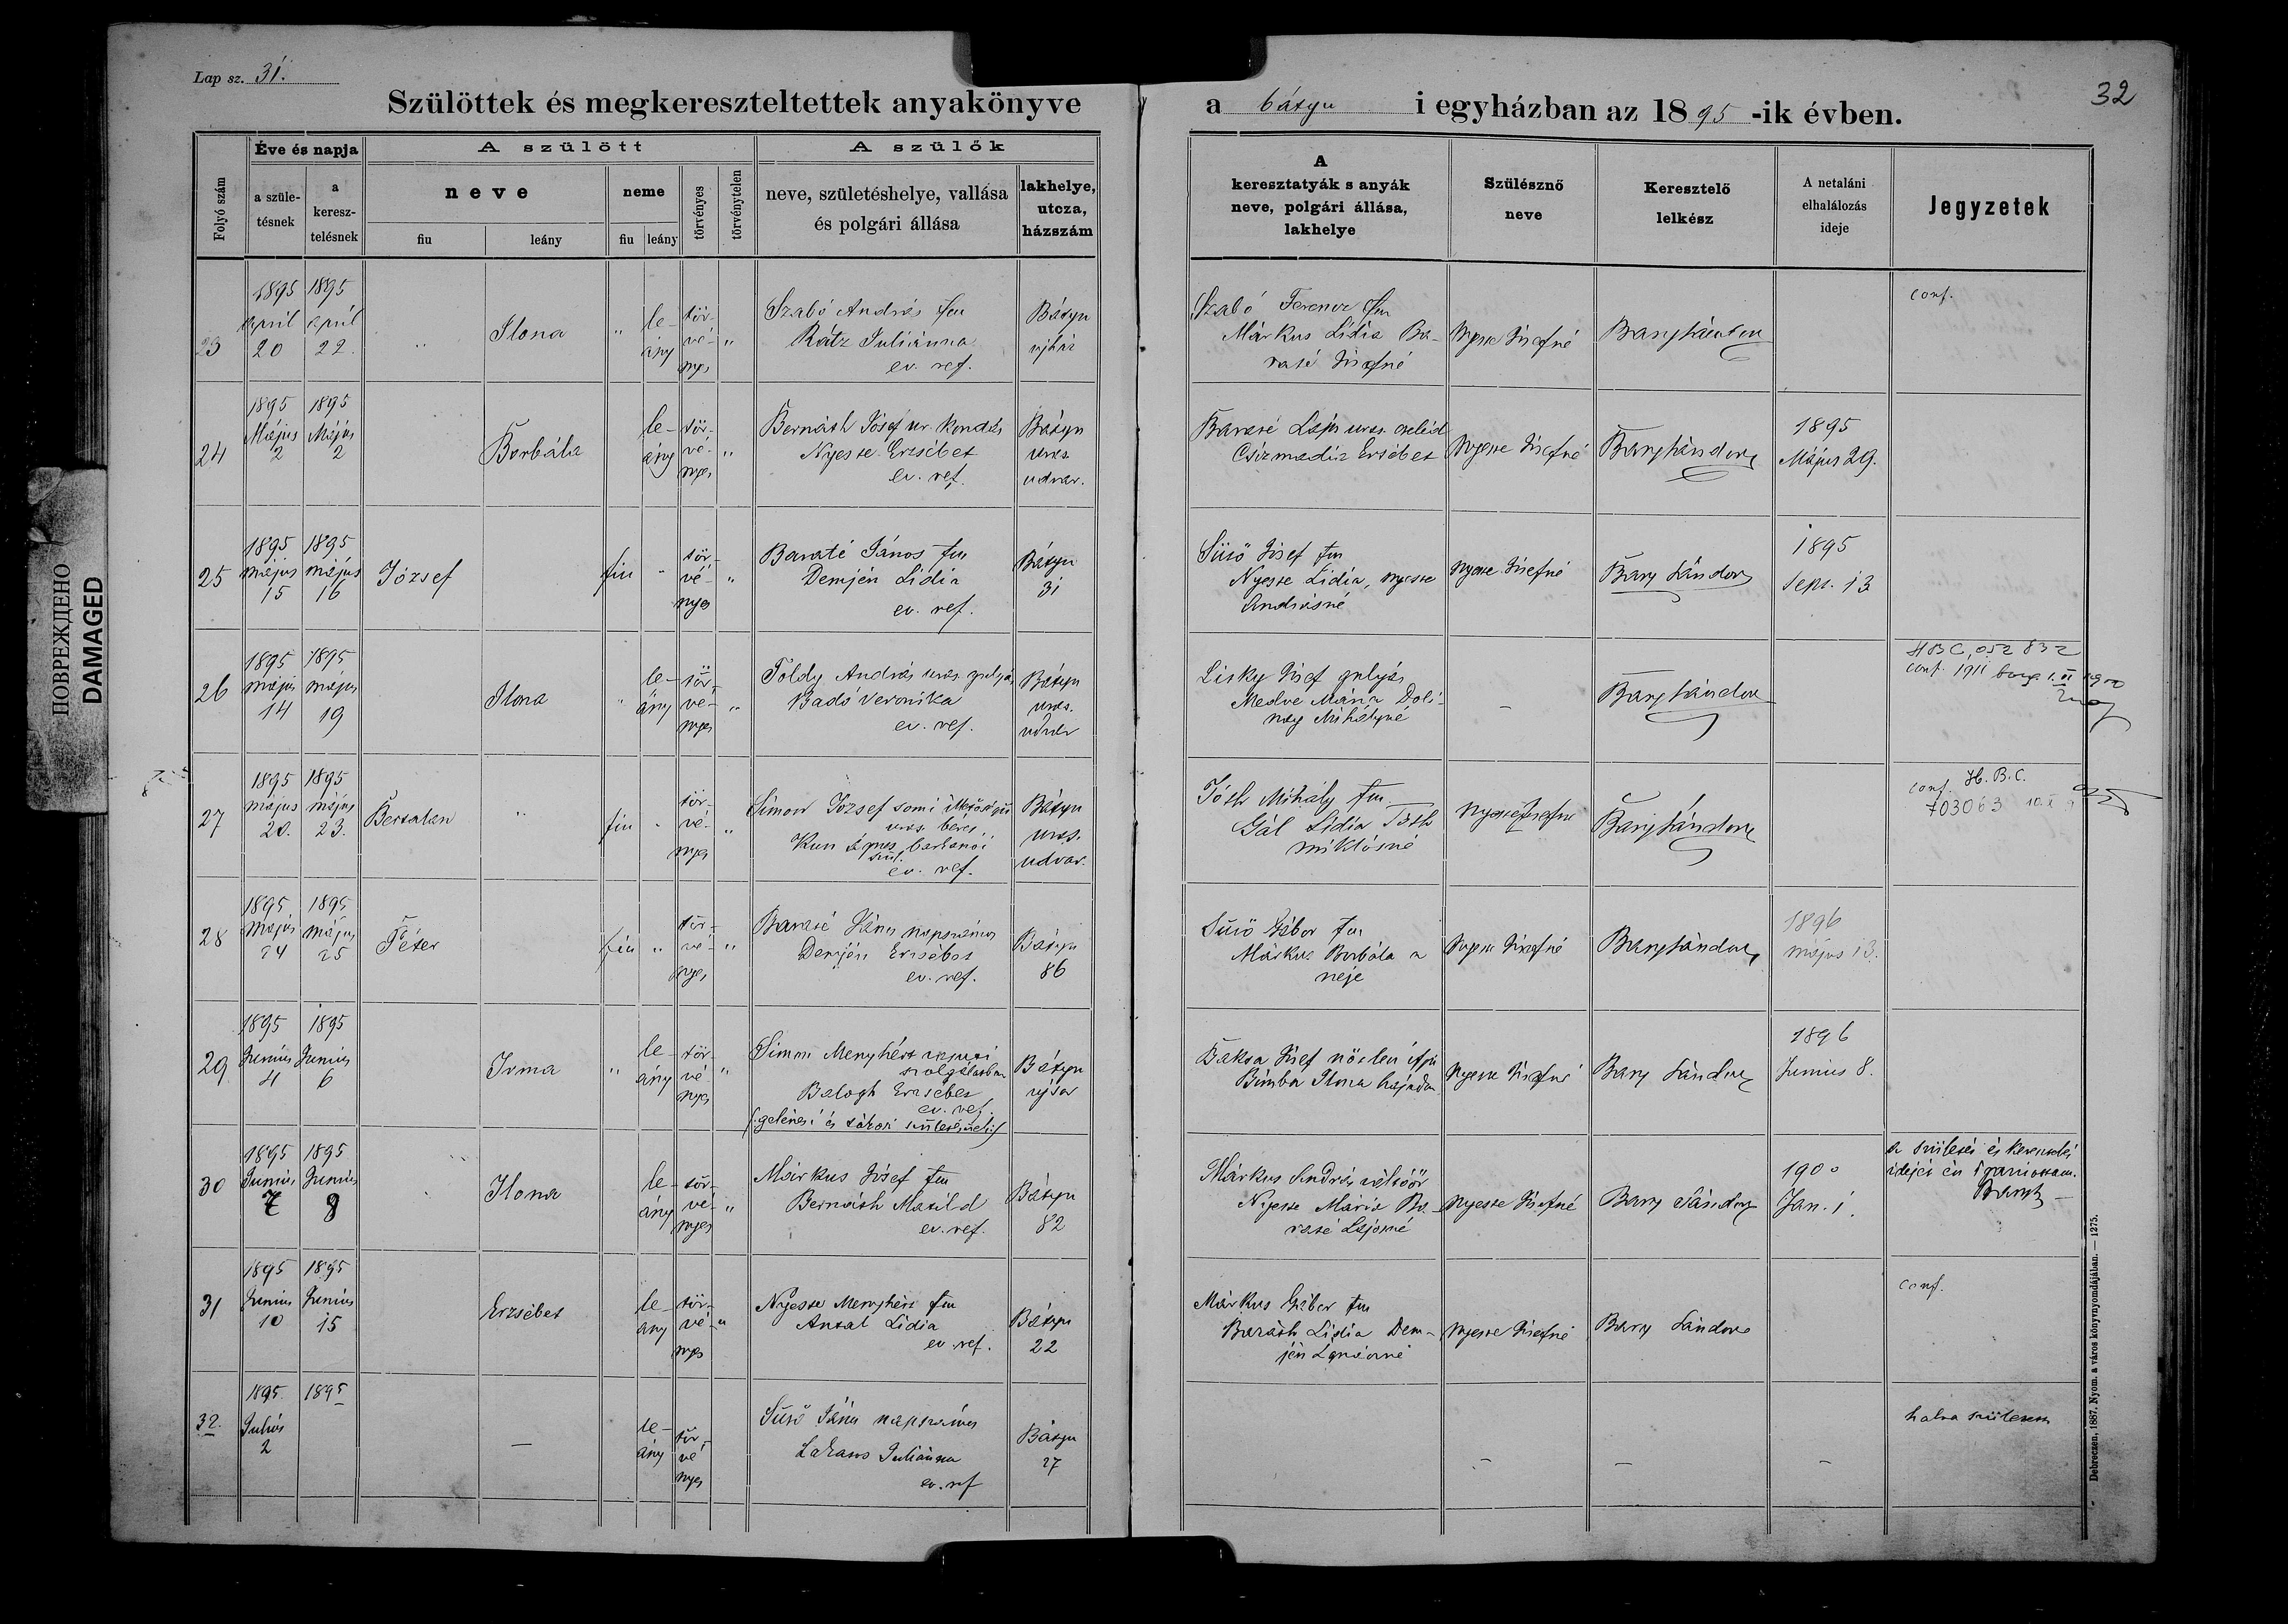 Lap sz. 31.
32
Szülöttek és megkereszteltettek anyakönyve
a bátyu i egyházban az 1895-ik évben.
Folyó szám
Éve és napja
a születésnek
a keresztelésnek
A szülött
neve
fiu
leány
neme
fiu
leány
törvényes
törvénytelen
A szülők
neve, születéshelye, vallása
és polgári állása
lakhelye,
utcza,
házszám
A
keresztatyák s anyák
neve, polgári állása,
lakhelye
Szülésznő
neve
Keresztelő
lelkész
A netaláni
elhalálozás
ideje
Jegyzetek
23
1895 április 20
1895 április 22.
Ilona
leány
törvényes
Szabó András fm
Rátz Juliánna
ev. ref.
Bátyu
Szabó Ferencz fm
Márkus Lidia Ba-
raté Józsefné
Nyeste Józsefné
Bary Sándor
conf.
24
1895 Május 2
1895 Május 2
Borbála
leány
törvényes
Bernáth József ur. kondás
Nyeste Erzsébet
ev. ref.
Bátyu
uras.
udvar.
Baraté Lajos uras. cseléd
Csizmadia Erzsébet
Nyeste Józsefné
Bary Sándor
1895
Május 29.
25
1895 május 15
1895 május 16
József
fiu
törvényes
Baraté János fm
Demjén Lidia
ev. ref.
Bátyu
31
Süső József fm
Nyeste Lidia, Nyeste
Andrásné
Nyeste Józsefné
Bary Sándor
1895
Sept. 13
26
1895 május 14
1895 május 19
Ilona
leány
törvényes
Földy András uras. gulyás
Badó Veronika
ev. ref.
Bátyu
uras.
udvar
Lisky József gulyás
Medve Mária Doli-
nay Mihályné
Bary Sándor
HBC, 052 832
conf. 1911
27
1895 május 20.
1895 május 23.
Bertalan
fiu
törvényes
Simon József somi
uras. béres
Kun Ágnes
szül.
ev. ref.
Bátyu
uras.
udvar.
Tóth Mihály fm
Gál Lidia Tóth
Miklósné
Nyeste Józsefné
Bary Sándor
conf. H. B. C.
703063
28
1895 Május 24
1895 május 25
Péter
fiu
törvényes
Baraté János napszámos
Demjén Erzsébet
ev. ref.
Bátyu
86
Süső Gábor fm
Márkus Borbála a
neje
Nyeste Józsefné
Bary Sándor
1896
május 13.
29
1895 Junius 4
1895 Junius 6
Irma
leány
törvényes
Simon Menyhért
szolgálatban
Balogh Erzsébet
ev. ref.
Bátyu
Baksa József nőtlen ifju
Bimba Ilona hajadon
Nyeste Józsefné
Bary Sándor
1896
Junius 8.
30
1895 Junius 7
1895 Junius 9
Ilona
leány
törvényes
Márkus József fm
Bernáth Matild
ev. ref.
Bátyu
82
Márkus András váltóőr
Nyeste Mária Ba-
raté Lajosné
Nyeste Józsefné
Bary Sándor
1900
Jan. 1.
a születés és keresztelés
idejét én igazitottam.
Bary
31
1895 Junius 10
1895 Junius 15
Erzsébet
leány
törvényes
Nyeste Menyhért fm
Antal Lidia
ev. ref.
Bátyu
22
Márkus Gábor fm
Baráth Lidia Dem-
jén
Nyeste Józsefné
Bary Sándor
conf.
32.
1895 Julius 2
1895
leány
törvényes
Süső János napszámos
Lakatos Juliánna
ev. ref
Bátyu
27
halva született
Debreczen, 1887. Nyom. a város könyvnyomdájában. — 1275.
ПОВРЕЖДЕНО
DAMAGED